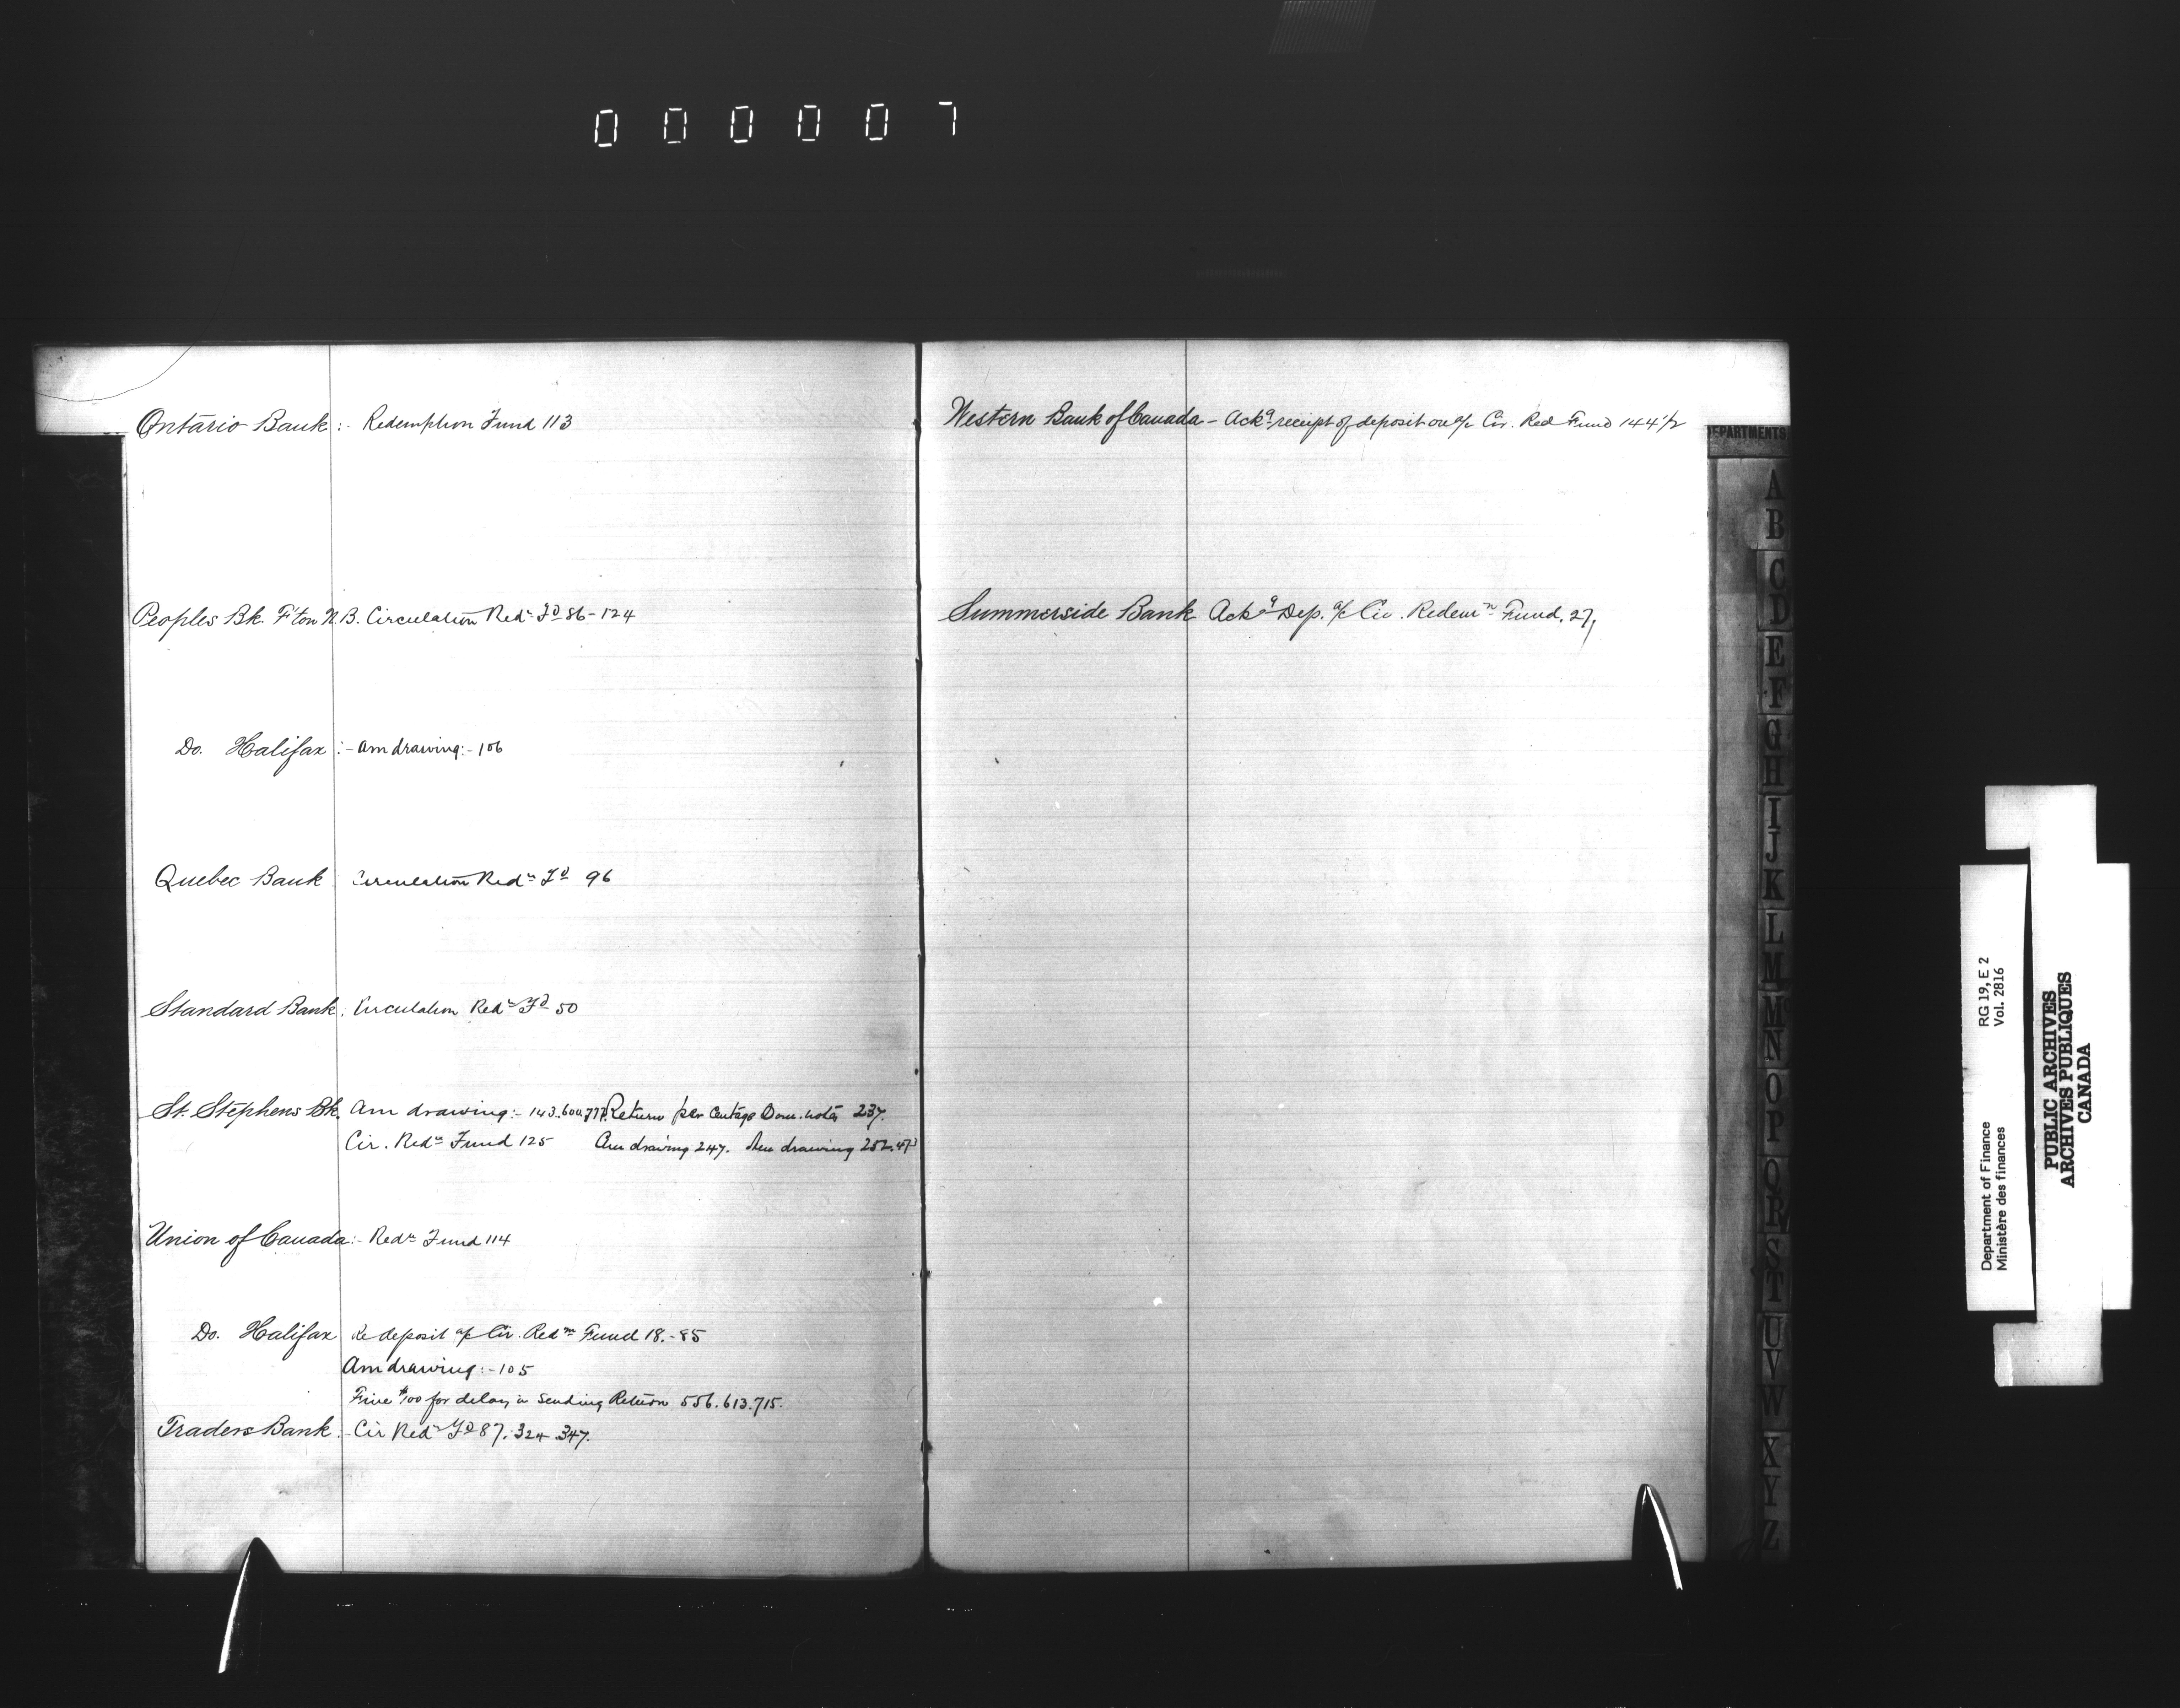 000007
Ontario Bank :- Redemption Fund 113
Peoples Bk. F'ton N.B. Circulation Redn Fd 86-124
Do. Halifax :- Am drawing:- 106
Quebec Bank Circulation Redn Fd 96
Standard Bank. Circulation Redn Fd 50
St. Stephens Bk. Am drawing:- 143.600.777. Return per centage Dom. notes 237.
Cir. Redn Fund 125 Am drawing 247. Am drawing 252.
Union of Canada :- Redn Fund 114
Do. Halifax Re deposit a/c Cir. Redm Fund 18.-85
Am drawing:- 105
Fine $100 for delay in Sending Return 556.613.715.
Traders Bank :- Cir Redn Fd 87. 324 347.
Western Bank of Canada - Ackg receipt of deposit on a/c Cir. Red Fund 144 1/2
Summerside Bank Ackg Dep. a/c Cir. Redemn Fund. 27,
DEPARTMENTS
A
B
C
D
E
F
G
H
I
J
K
L
M
M
N
O
P
Q
R
S
T
U
V
W
X
Y
Z
Department of Finance RG 19, E 2
Ministère des finances Vol. 2816
PUBLIC ARCHIVES
ARCHIVES PUBLIQUES
CANADA